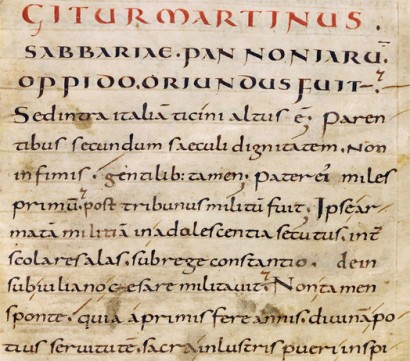 GITUR MARTINUS.
SABBARIAE·PANNONIARŪ
OPPIDO·ORIUNDUS FUIT·
Sed intra italiā ticini altus ē. Paren
tibus secundum saeculi dignitatem. Non
infimis. gentilib: tamen. Pater ei miles
primū. post tribunus militū fuit. Ipse ar
matā militiā in adolescentia secutus. int
scolares alas. sub rege constantio. dein
sub iuliano cęsare militavit. Non tamen
sponte. quia a primis fere annis. divinā po
tius servitutē. sacra inlustris pueri inspi